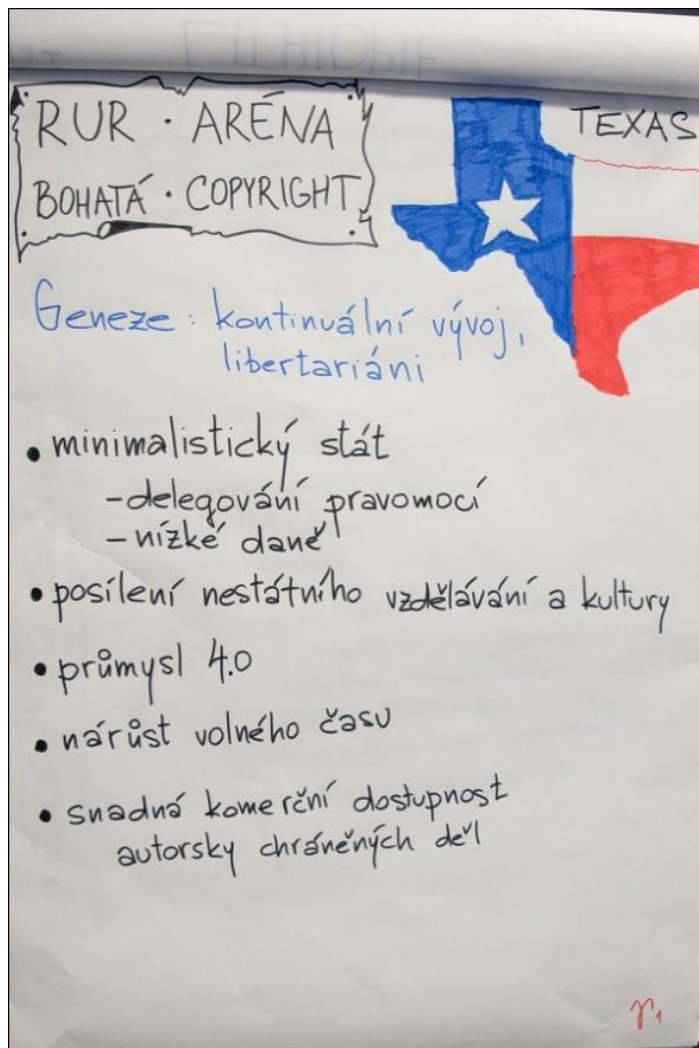 RUR · ARÉNA
BOHATÁ · COPYRIGHT
TEXAS
Geneze: kontinuální vývoj,
libertariáni
• minimalistický stát
- delegování pravomocí
- nízké daně
• posílení nestátního vzdělávání a kultury
• průmysl 4.0
• nárůst volného času
• snadná komerční dostupnost
autorsky chráněných děl